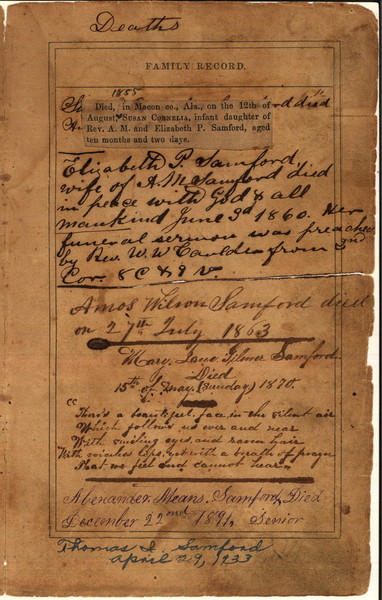 Deaths
FAMILY RECORD.
1855
Died, in Macon co., Ala., on the 12th of
August, SUSAN CORNELIA, infant daughter of
Rev. A. M. and Elizabeth P. Samford, aged
ten months and two days.
died
Elizabeth P. Samford,
wife of A. M. Samford died
in peace with God & all
mankind June 3d 1860. Her
funeral sermon was preached
by Rev. W. W. from 2nd
Cor. 8 C & 9 V.
Amos Wilson Samford died
on 27th July 1863
Mary Jane Gilmer Samford
Died
15th of May (Sunday) 1870
"There's a beautiful face in the silent air
Which follows us ever and near
With smiling eyes and raven hair
With voiceless lips, yet with a breath of prayer
That we feel and cannot hear"
Means Samford, Died
December 22nd 1894, Senior
Thomas Samford
April 29, 1933